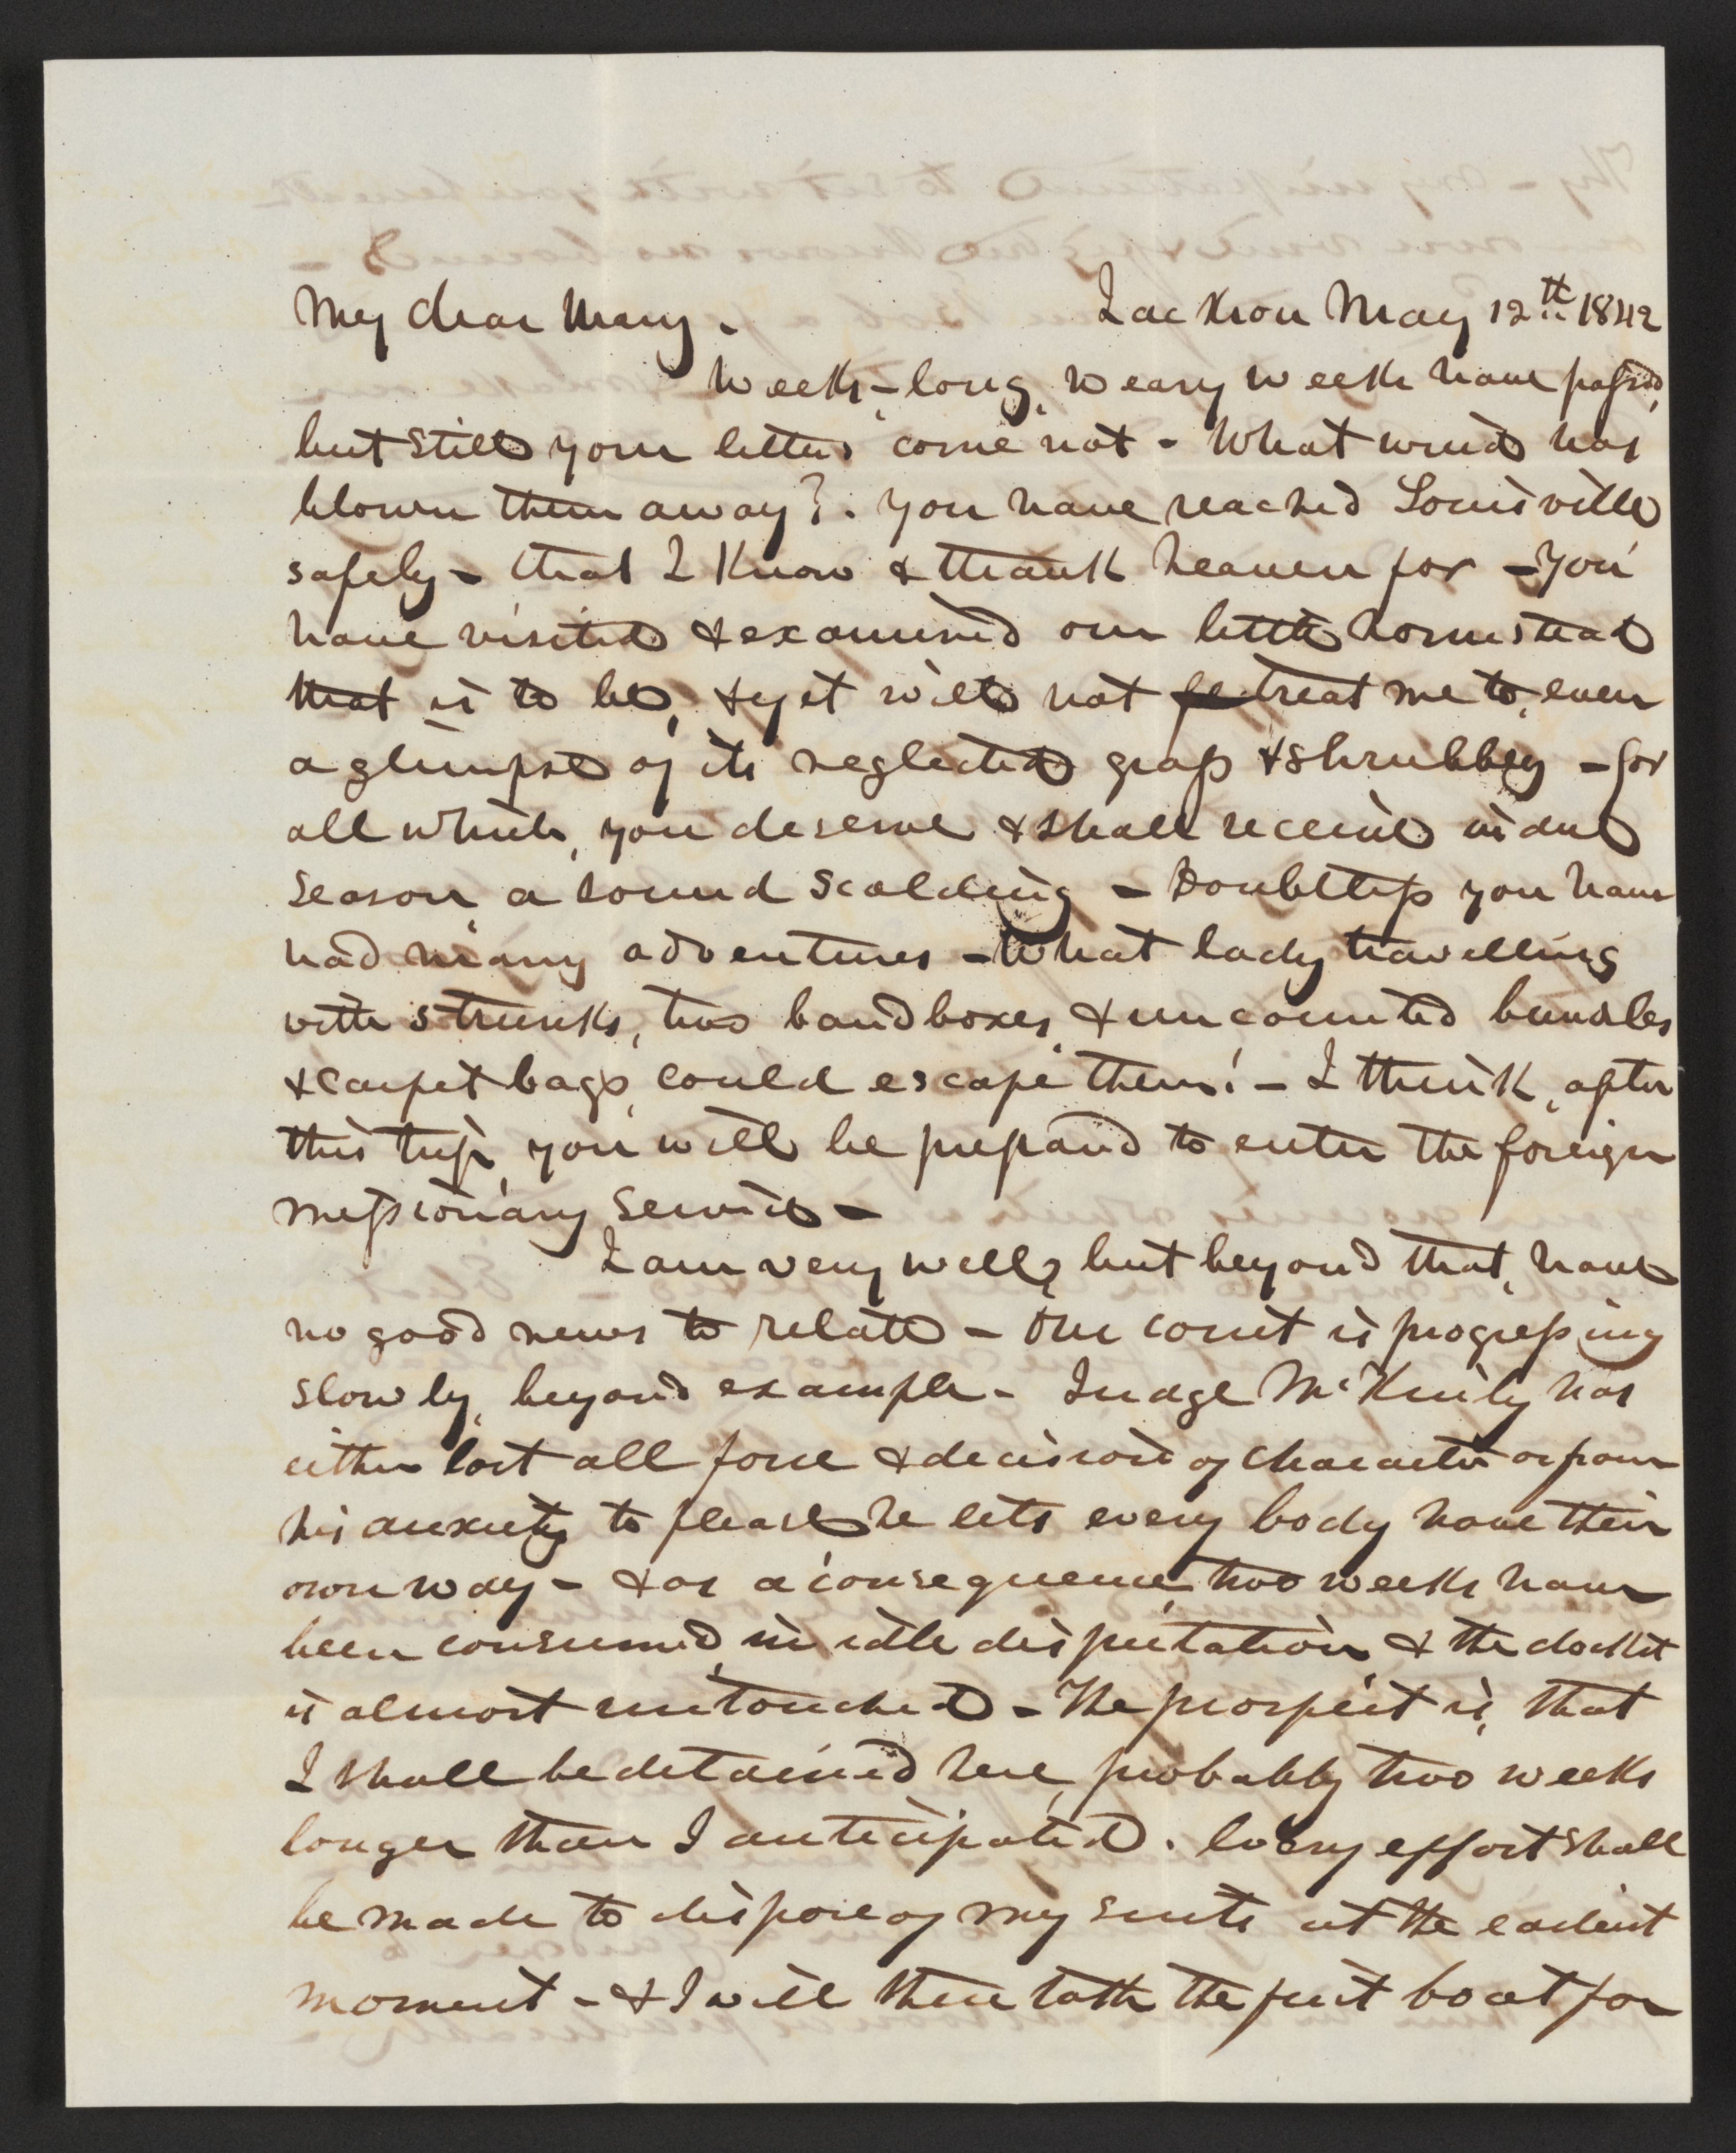 My dear Mary - Jackson May 12th 1842
Weeks, - long, weary weeks have passed,
but still your letters come not - What wind has
blown them away? . You have reached Louisville
safely - that I know & thank heaven for - You
have visited & examined our little homestead
that is to be, & yet will not treat me to, even
a glimpse of its neglected grass & shrubbery - for
all which, you deserve & shall receive in due
season, a sound scolding - Doubtless you have
had many adventures - What lady travelling
with 5 trunks, two bandboxes, & uncounted bundles
& carpet bags, could escape them! - I think, after
this trip, you will be prepared to enter the foreign
missionary service -
I am very well, but beyond that, have
no good news to relate - Our court is progressing
slowly, beyond example - Judge McKinly has
either lost all force & decision of character or from
his anxiety to please he lets every body have their
own way - & as a consequence, two weeks have
been consumed, in idle disputation, & the docket
is almost untouched - The prospect is, that
I shall be detained here, probably two weeks
longer than I anticipated . Every effort shall
be made to dispose of my suits at the earliest
moment - & I will then take the first boat for